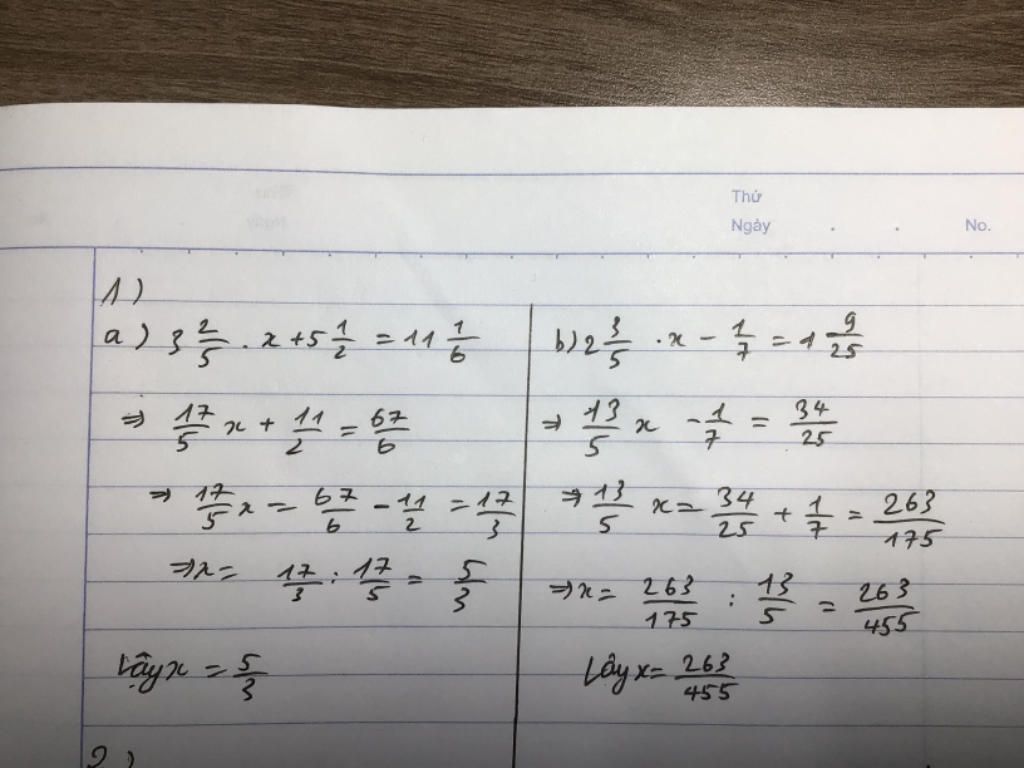 Thứ
Ngày . . No.
1)
a) 3 2/5 . x + 5 1/2 = 11 1/6
=> 17/5 x + 11/2 = 67/6
=> 17/5 x = 67/6 - 11/2 = 17/3
=> x = 17/3 : 17/5 = 5/3
Vậy x = 5/3
b) 2 3/5 . x - 1/7 = 1 9/25
=> 13/5 x - 1/7 = 34/25
=> 13/5 x = 34/25 + 1/7 = 263/175
=> x = 263/175 : 13/5 = 263/455
Vây x = 263/455
2)